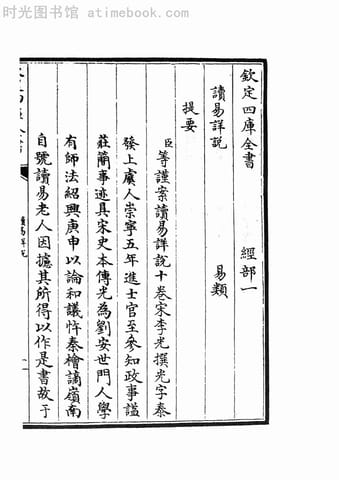 时光图书馆 www.atimebook.com
欽定四庫全書　　　經部一
讀易詳說　　　　易類
提要
臣等謹案讀易詳說十卷宋李光撰光字泰
發上虞人崇寧五年進士官至參知政事謚
莊簡事迹具宋史本傳光為劉安世門人學
有師法紹興庚申以論和議忤秦檜謫嶺南
自號讀易老人因攄其所得以作是書故于
讀易詳說